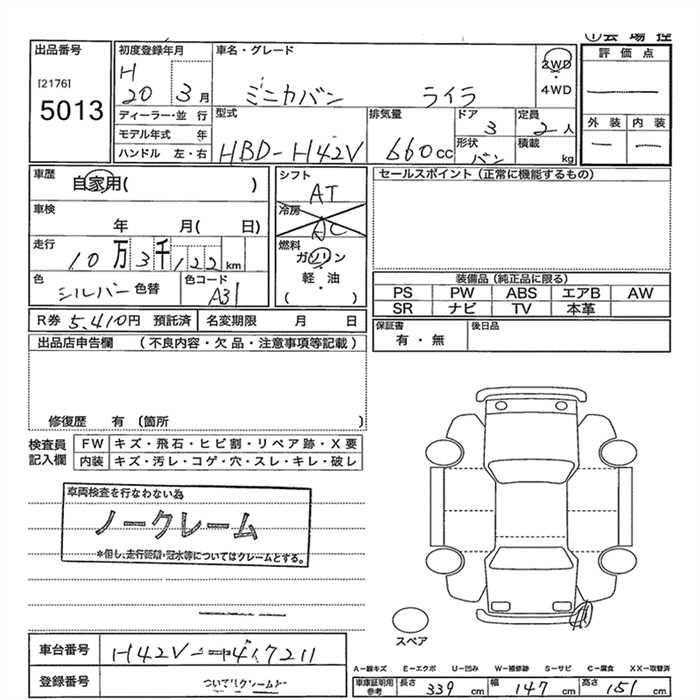 ①会場控
出品番号
[2176]
5013
初度登録年月
H
20 3月
ディーラー・並 行
モデル年式 年
ハンドル 左・右
車名・グレード
ミニカバン ライラ
2WD
・
4WD
型式
HBD-H42V
排気量
660cc
ドア
3
形状
バン
定員
2人
積載
kg
評価点
外装 内装
車歴
自家用( )
車検
年 月( 日)
走行
10万3千122km
色
シルバー 色替
色コード
A31
シフト
AT
冷房
AC
燃料
ガソリン
軽・油
( )
セールスポイント (正常に機能するもの)
装備品 (純正品に限る)
PS PW ABS エアB AW
SR ナビ TV 本革
R券 5,410円 預託済 名変期限 月 日
保証書
有・無
後日品
出品店申告欄 (不良内容・欠品・注意事項等記載)
修復歴 有 (箇所 )
検査員
記入欄
FW キズ・飛石・ヒビ割・リペア跡・X要
内装 キズ・汚レ・コゲ・穴・スレ・キレ・破レ
車両検査を行なわない為
ノークレーム
*但し、走行距離・冠水等についてはクレームとする。
スペア
A
車台番号 H42V-4617211
登録番号
ついてはクレームと
A−線キズ E−エクボ U−凹み W−補修跡 S−サビ C−腐食 XX−取替済
車庫証明用
参考
長さ 339cm 幅 147cm 高さ 151cm